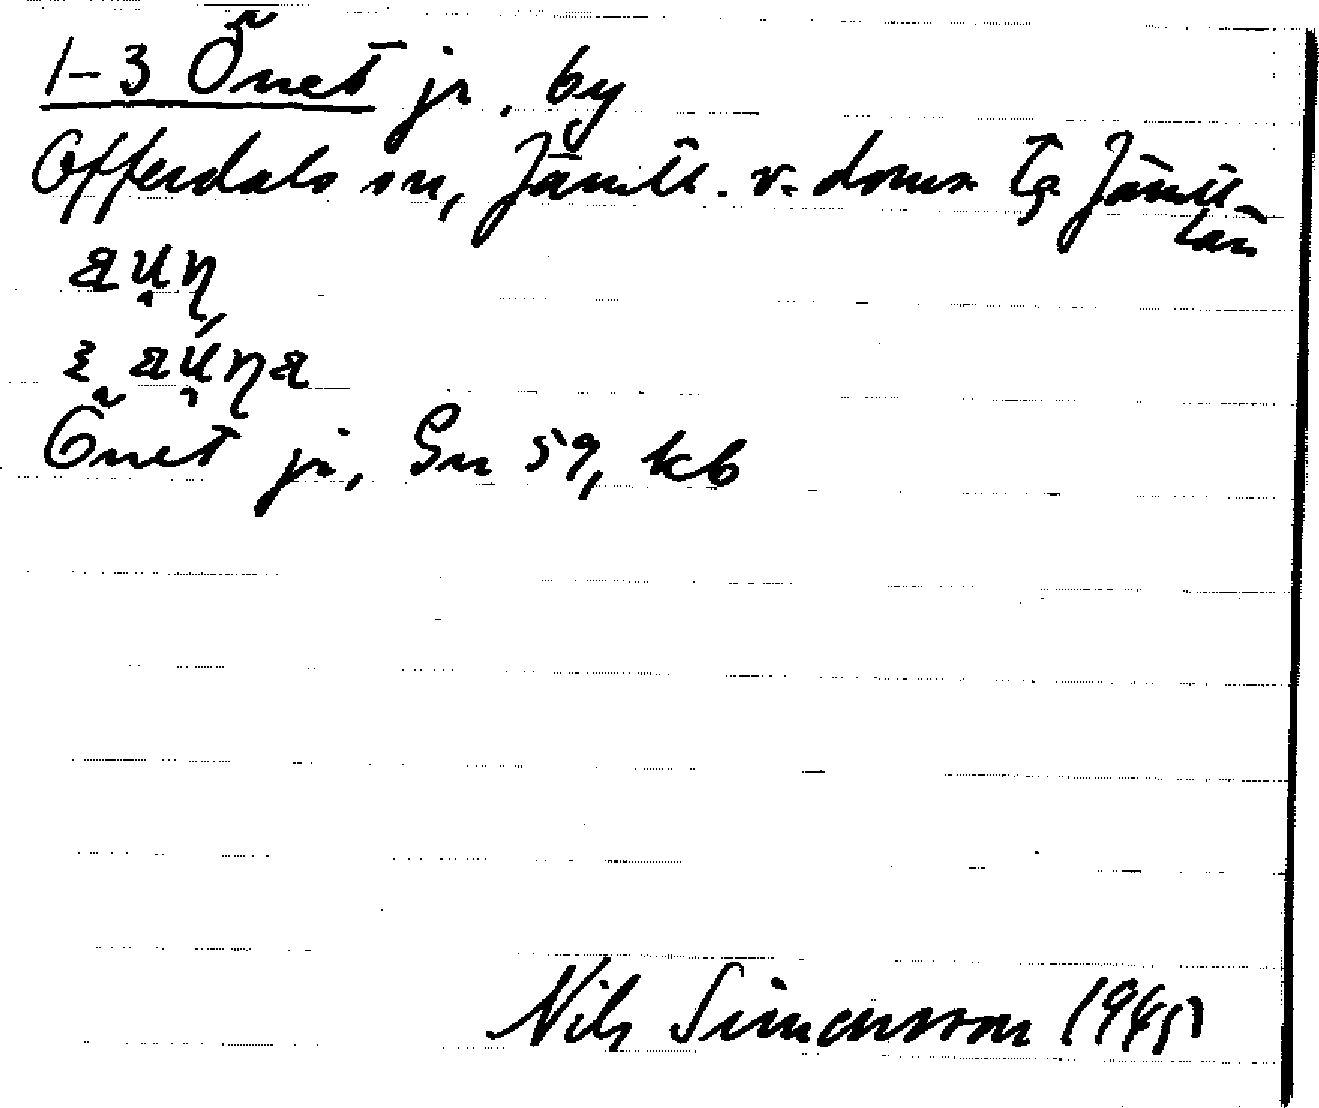 1-3 Önet jr. by
Offerdals sn, Jämtl. v. doms. Jämtl.
län
Önet jr, Gn 59, kb
Nils Simonsson 1945